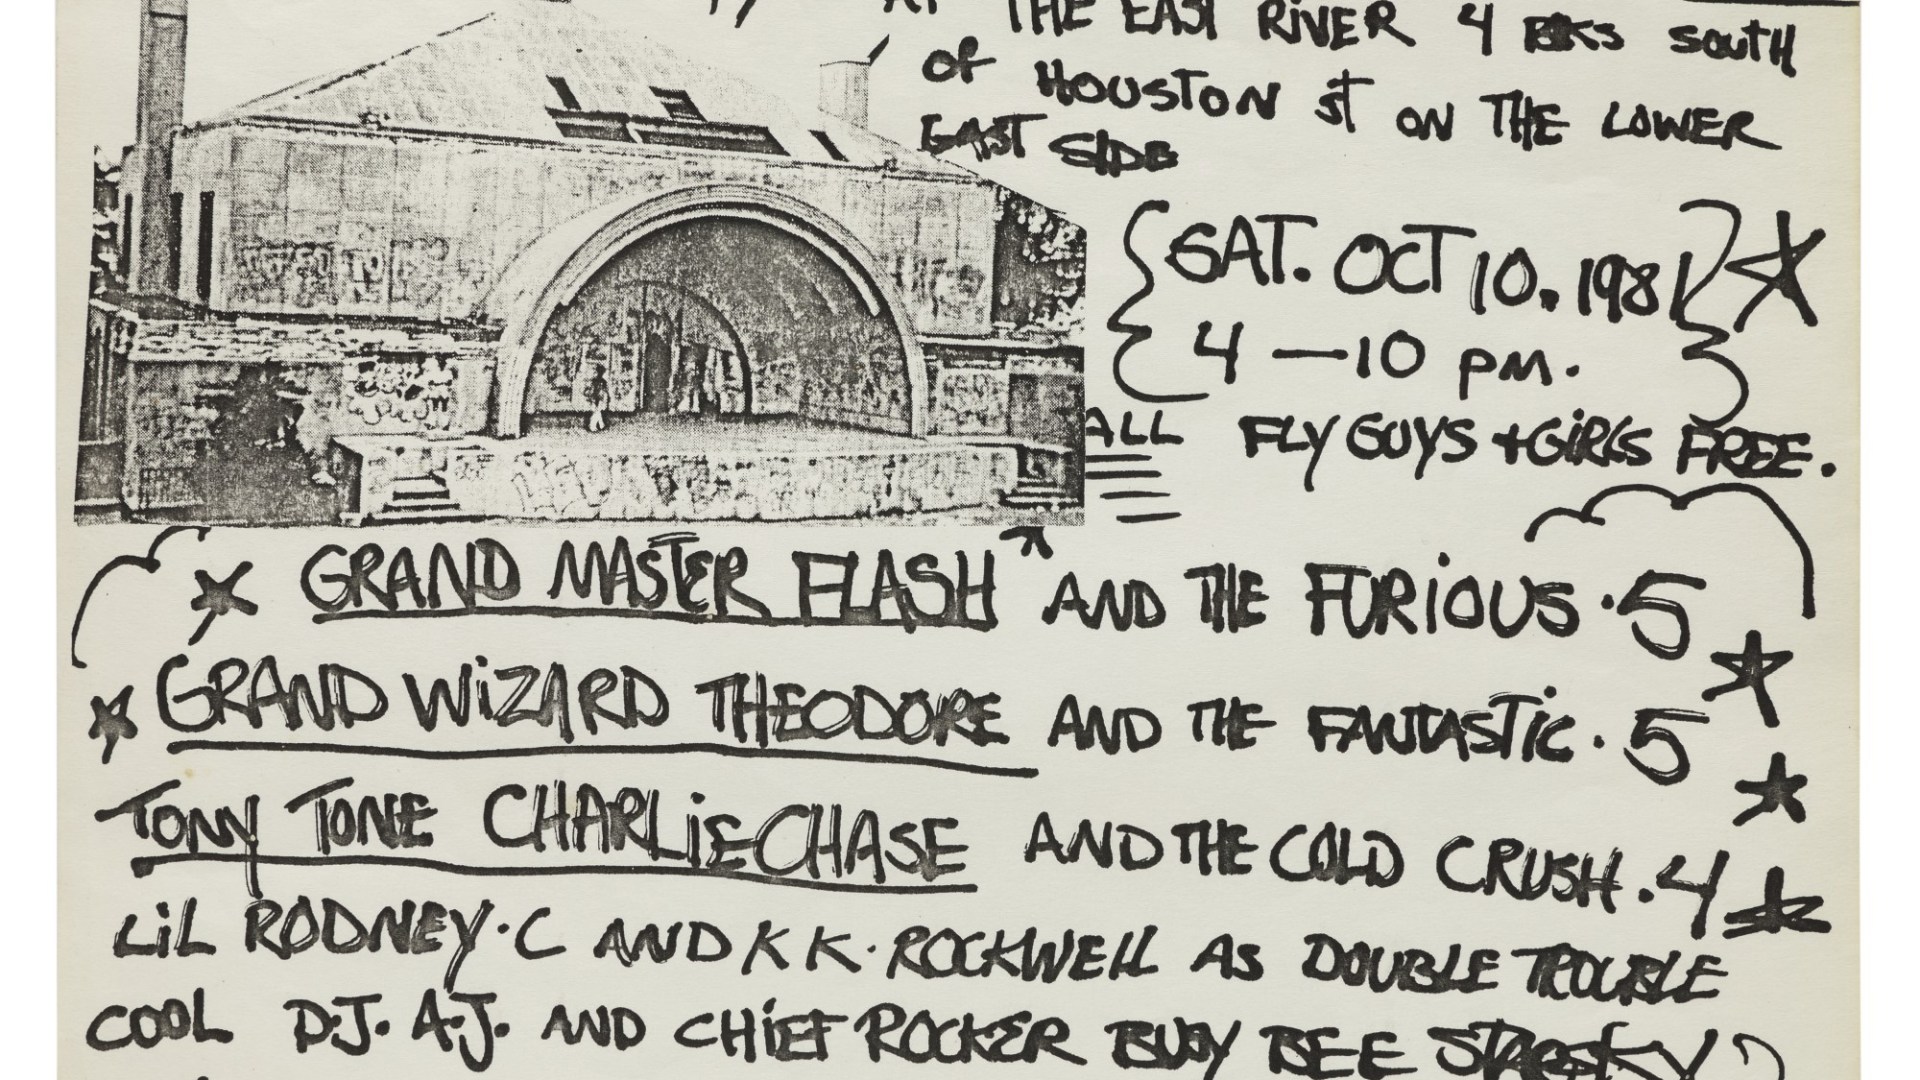 AT THE EAST RIVER 4 BKS SOUTH
OF HOUSTON ST ON THE LOWER
EAST SIDE
SAT. OCT 10. 1981
4 — 10 PM.
ALL FLY GUYS + GiRLS FREE.
GRAND MASTER FLASH AND THE FURiOUS · 5
GRAND WiZARD THEODORE AND THE FANTASTiC · 5
TONY TONE CHARLiE CHASE AND THE COLD CRUSH · 4
LiL RODNEY · C AND K K · ROCKWELL AS DOUBLE TROUBLE
COOL D.J. A.J. AND CHiEF ROCKER BUSY BEE STARSKY